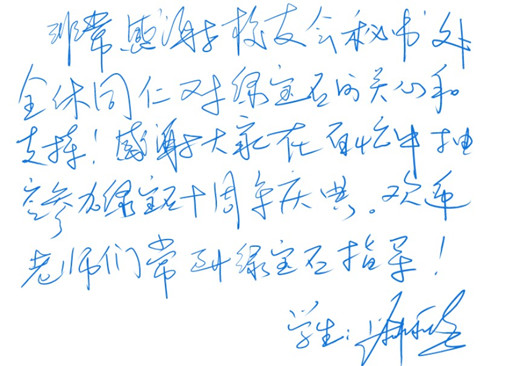 非常感谢校友会秘书处
全体同仁对绿宝石的关心和
支持！感谢大家在百忙中抽
空参加绿宝石十周年庆典。欢迎
老师们常到绿宝石指导！
学生：